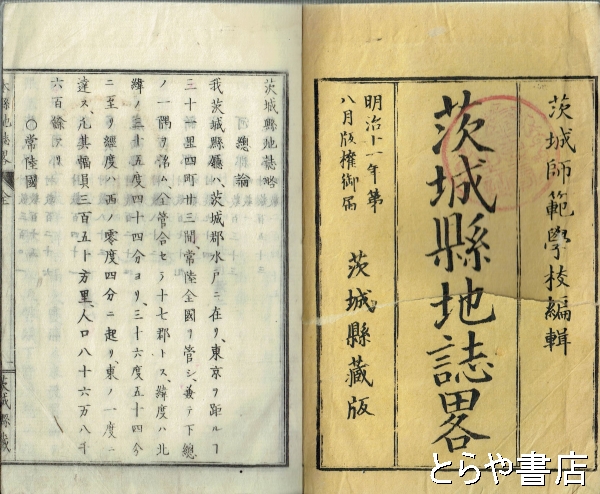 茨城師範學校編輯
茨城縣地誌畧
明治十一年第
八月版權御届
茨城縣藏版
茨城縣地誌略
總論
我茨城縣廳ハ、茨城郡水戸ニ在リ、東京ヲ距ルヿ
三十一里四町廿三間、常陸全國ヲ管シ、兼テ下總
ノ一隅ヲ治ム、全管合セテ十七郡トス、緯度ハ北
緯ノ三十五度四十四分ヨリ、三十六度五十四分
ニ至リ、經度ハ西ノ零度四分ニ起リ、東ノ一度ニ
達ス、凡其幅員三百五十方里、人口八十六万八千
六百餘アリ
〇常陸國
本縣地誌畧
全
茨城縣藏
とらや書店